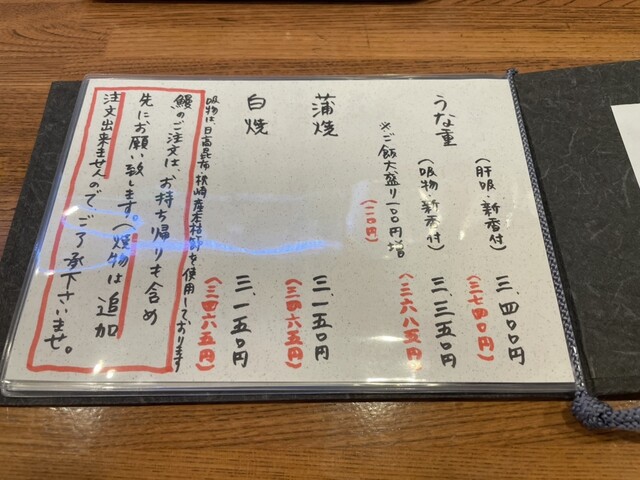 うな重
(肝吸・新香付) 三、四〇〇円
(三七四〇円)
(吸物・新香付) 三、三五〇円
(三六八五円)
※ご飯大盛り一〇〇円増
(一一〇円)
蒲焼 三、一五〇円
(三四六五円)
白焼 三、一五〇円
(三四六五円)
吸物は、日高昆布・枕崎産本枯節を使用しております
鰻のご注文は、お持ち帰りも含め
先にお願い致します。(焼物は追加
注文出来ませんので、ご了承下さいませ。